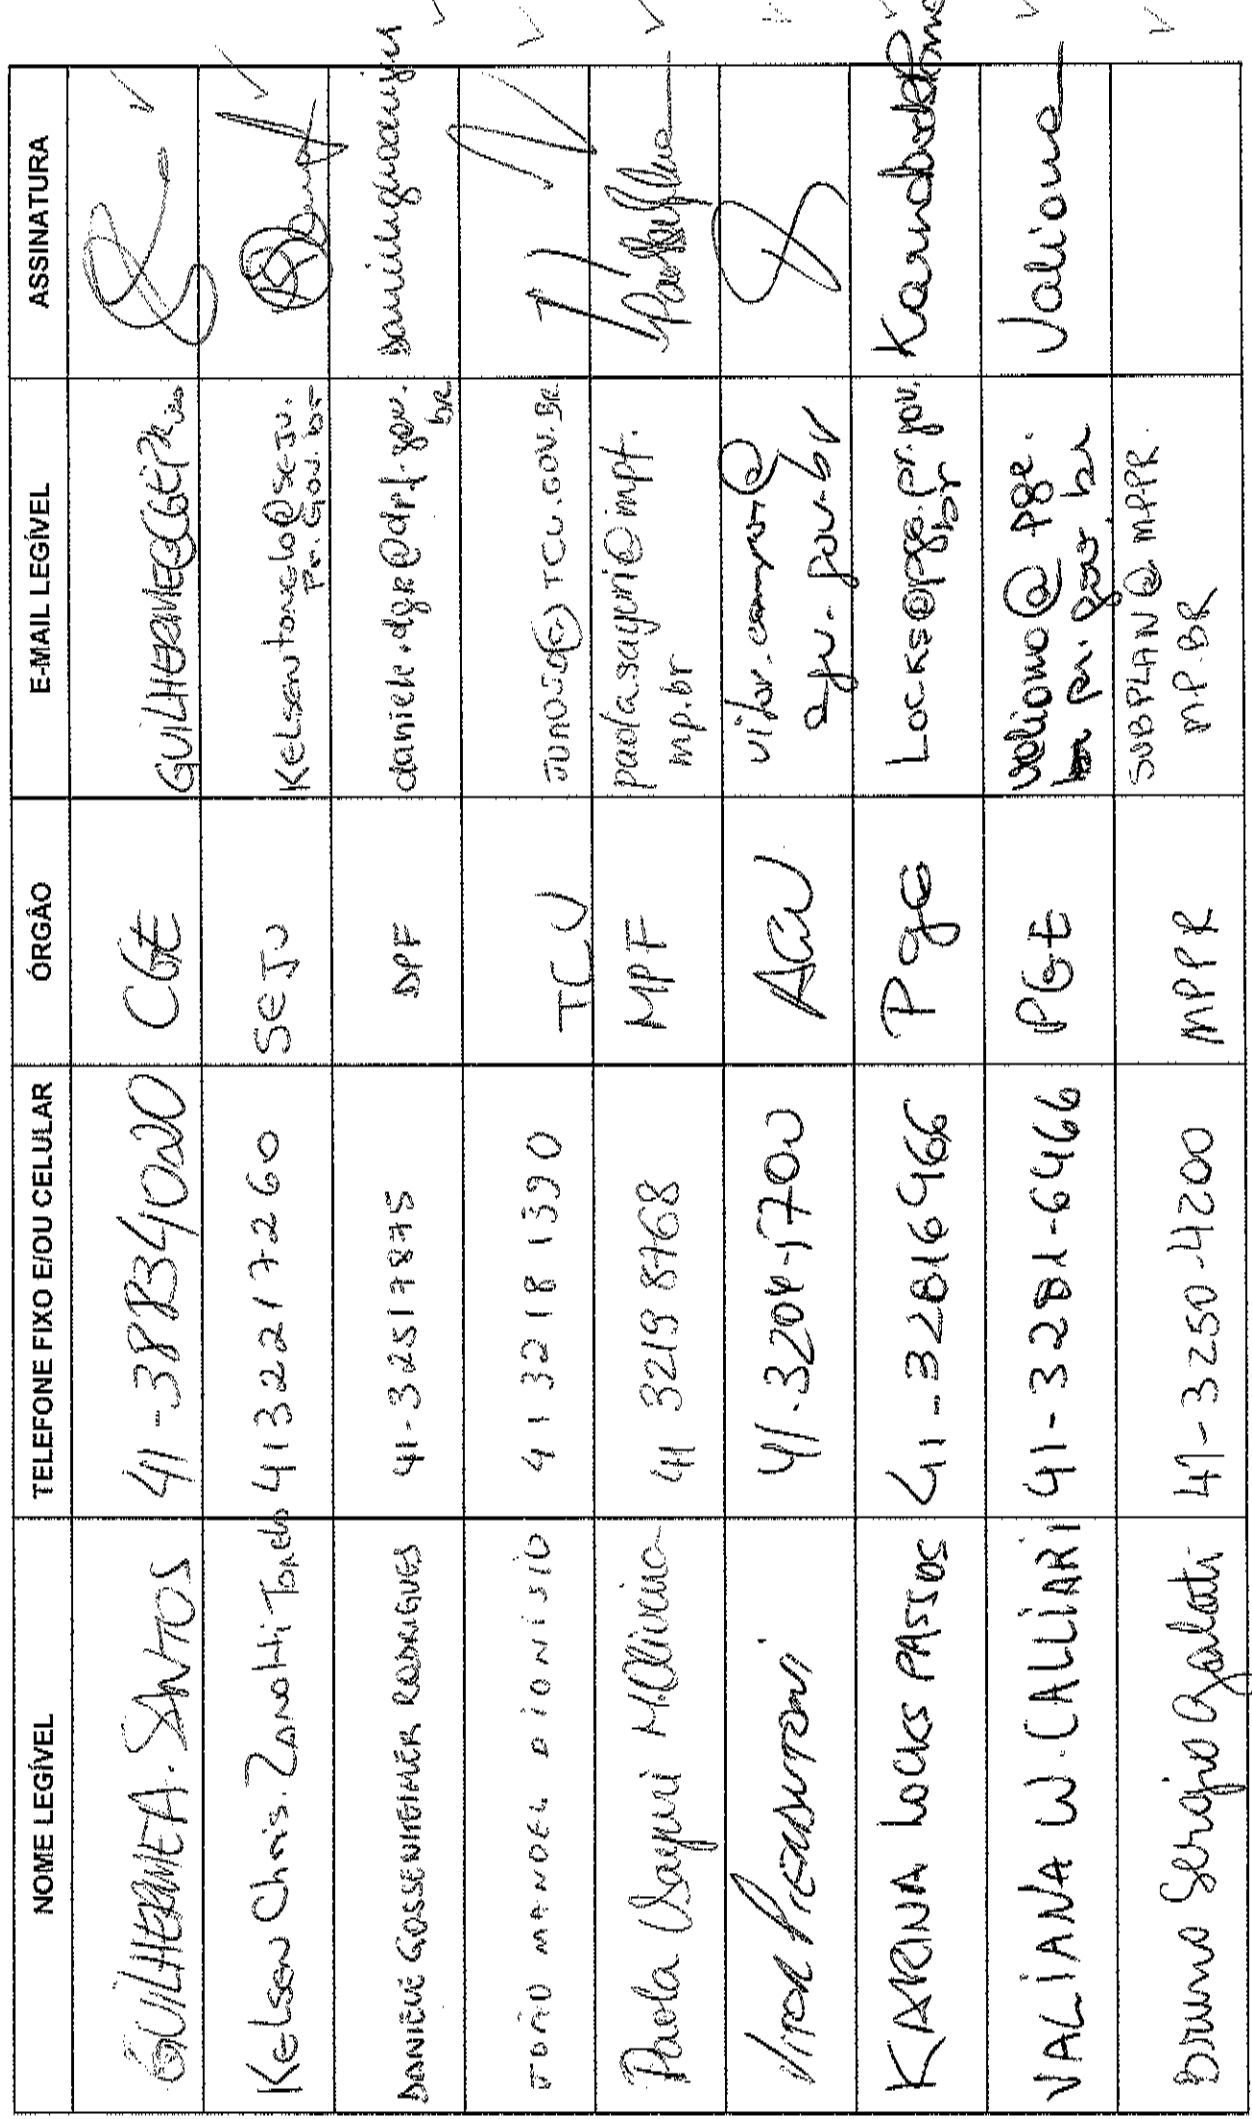 NOME LEGÍVEL TELEFONE FIXO E/OU CELULAR ÓRGÃO E-MAIL LEGÍVEL ASSINATURA
GUILHERME A. SANTOS 41-38834020 CGE
Kelsen Chris. Zanotti Tonelo 41 3221 7260 SEJU Kelsentonelo@seju.
pr.gov.br
DANIELE GOSSENHEIMER RODRIGUES 41-32517875 DPF daniele.dgr@dpf.gov.
br
JOÃO MANOEL DIONISIO 41 3218 1390 TCU TCU.GOV.BR
Paola Sayuri M. Oliveira 41 3219 8768 MPF paola.sayuri@mpf.
mp.br
VITOR 41-3204-1700 AGU vitor.
agu.gov.br
KARINA LOCKS PASSOS 41-32816466 Pge Locks@pge.pr.gov.
br
VALIANA W. CALLIARI 41-3281-6466 PGE valiana@pge.
pr.gov.br Valiana
Bruno Sergio Galati 41-3250-4200 MPPR SUBPLAN@MPPR.
MP.BR